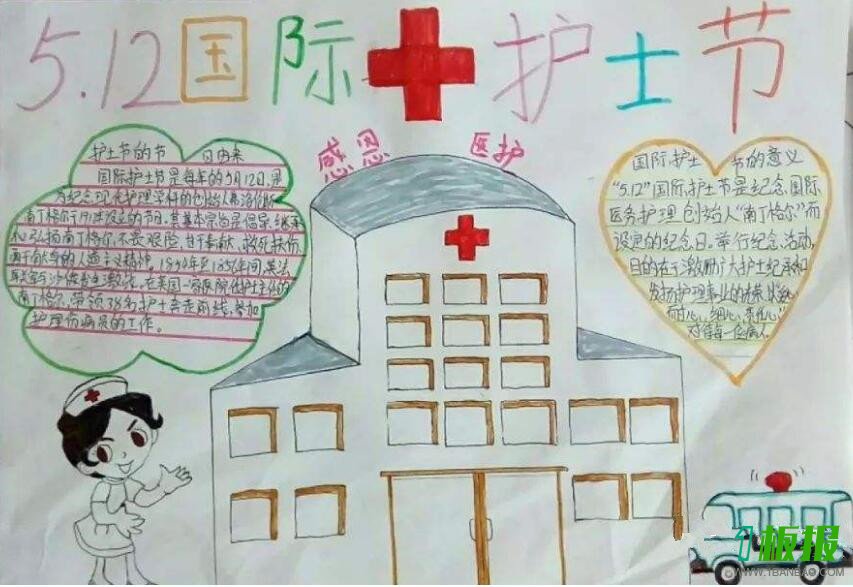 5.12国际护士节
感恩 医护
护士节的节 日由来
国际护士节是每年的5月12日,是
为纪念现代护理学科的创始人弗洛伦斯
南丁格尔于1912年设立的节日,其基本宗旨是倡导,继承
和弘扬南丁格尔不畏艰险,甘于奉献,救死扶伤
勇于献身的人道主义精神。
南丁格尔,带领38名护士奔走前线,参加
护理伤病员的工作。
国际护士 节的意义
“5.12”国际护士节是纪念国际
医务护理创始人“南丁格尔”而
设定的纪念日。举行纪念活动,
目的在于激励广大护士继承和
发扬护理事业的
耐心、细心、责任心
板报
WWW.YBANBAO.COM